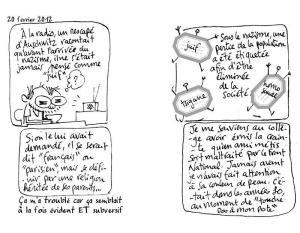 20 février 2012
À la radio, un rescapé
d'Auschwitz racontait
qu'avant l'arrivée du
nazisme, il ne s'était
jamais pensé comme
"juif"
Si on le lui avait
demandé, il se serait
dit "français" ou
"parisien", mais se défi-
nir par une religion
héritée de ses parents...
Ça m'a troublé car ça semblait
à la fois évident ET subversif
Sous le nazisme, une
partie de la population
a été étiquetée
afin d'être
éliminée
de la
société
juif
tzigane
homo
sexuel
Je me souviens au collè-
ge avoir émis la crain-
te qu'un ami métis
soit maltraité par le Front
National. Jamais avant
je n'avais fait attention
à sa couleur de peau. C'é-
tait dans les années 80,
au moment de "touche
pas à mon pote"